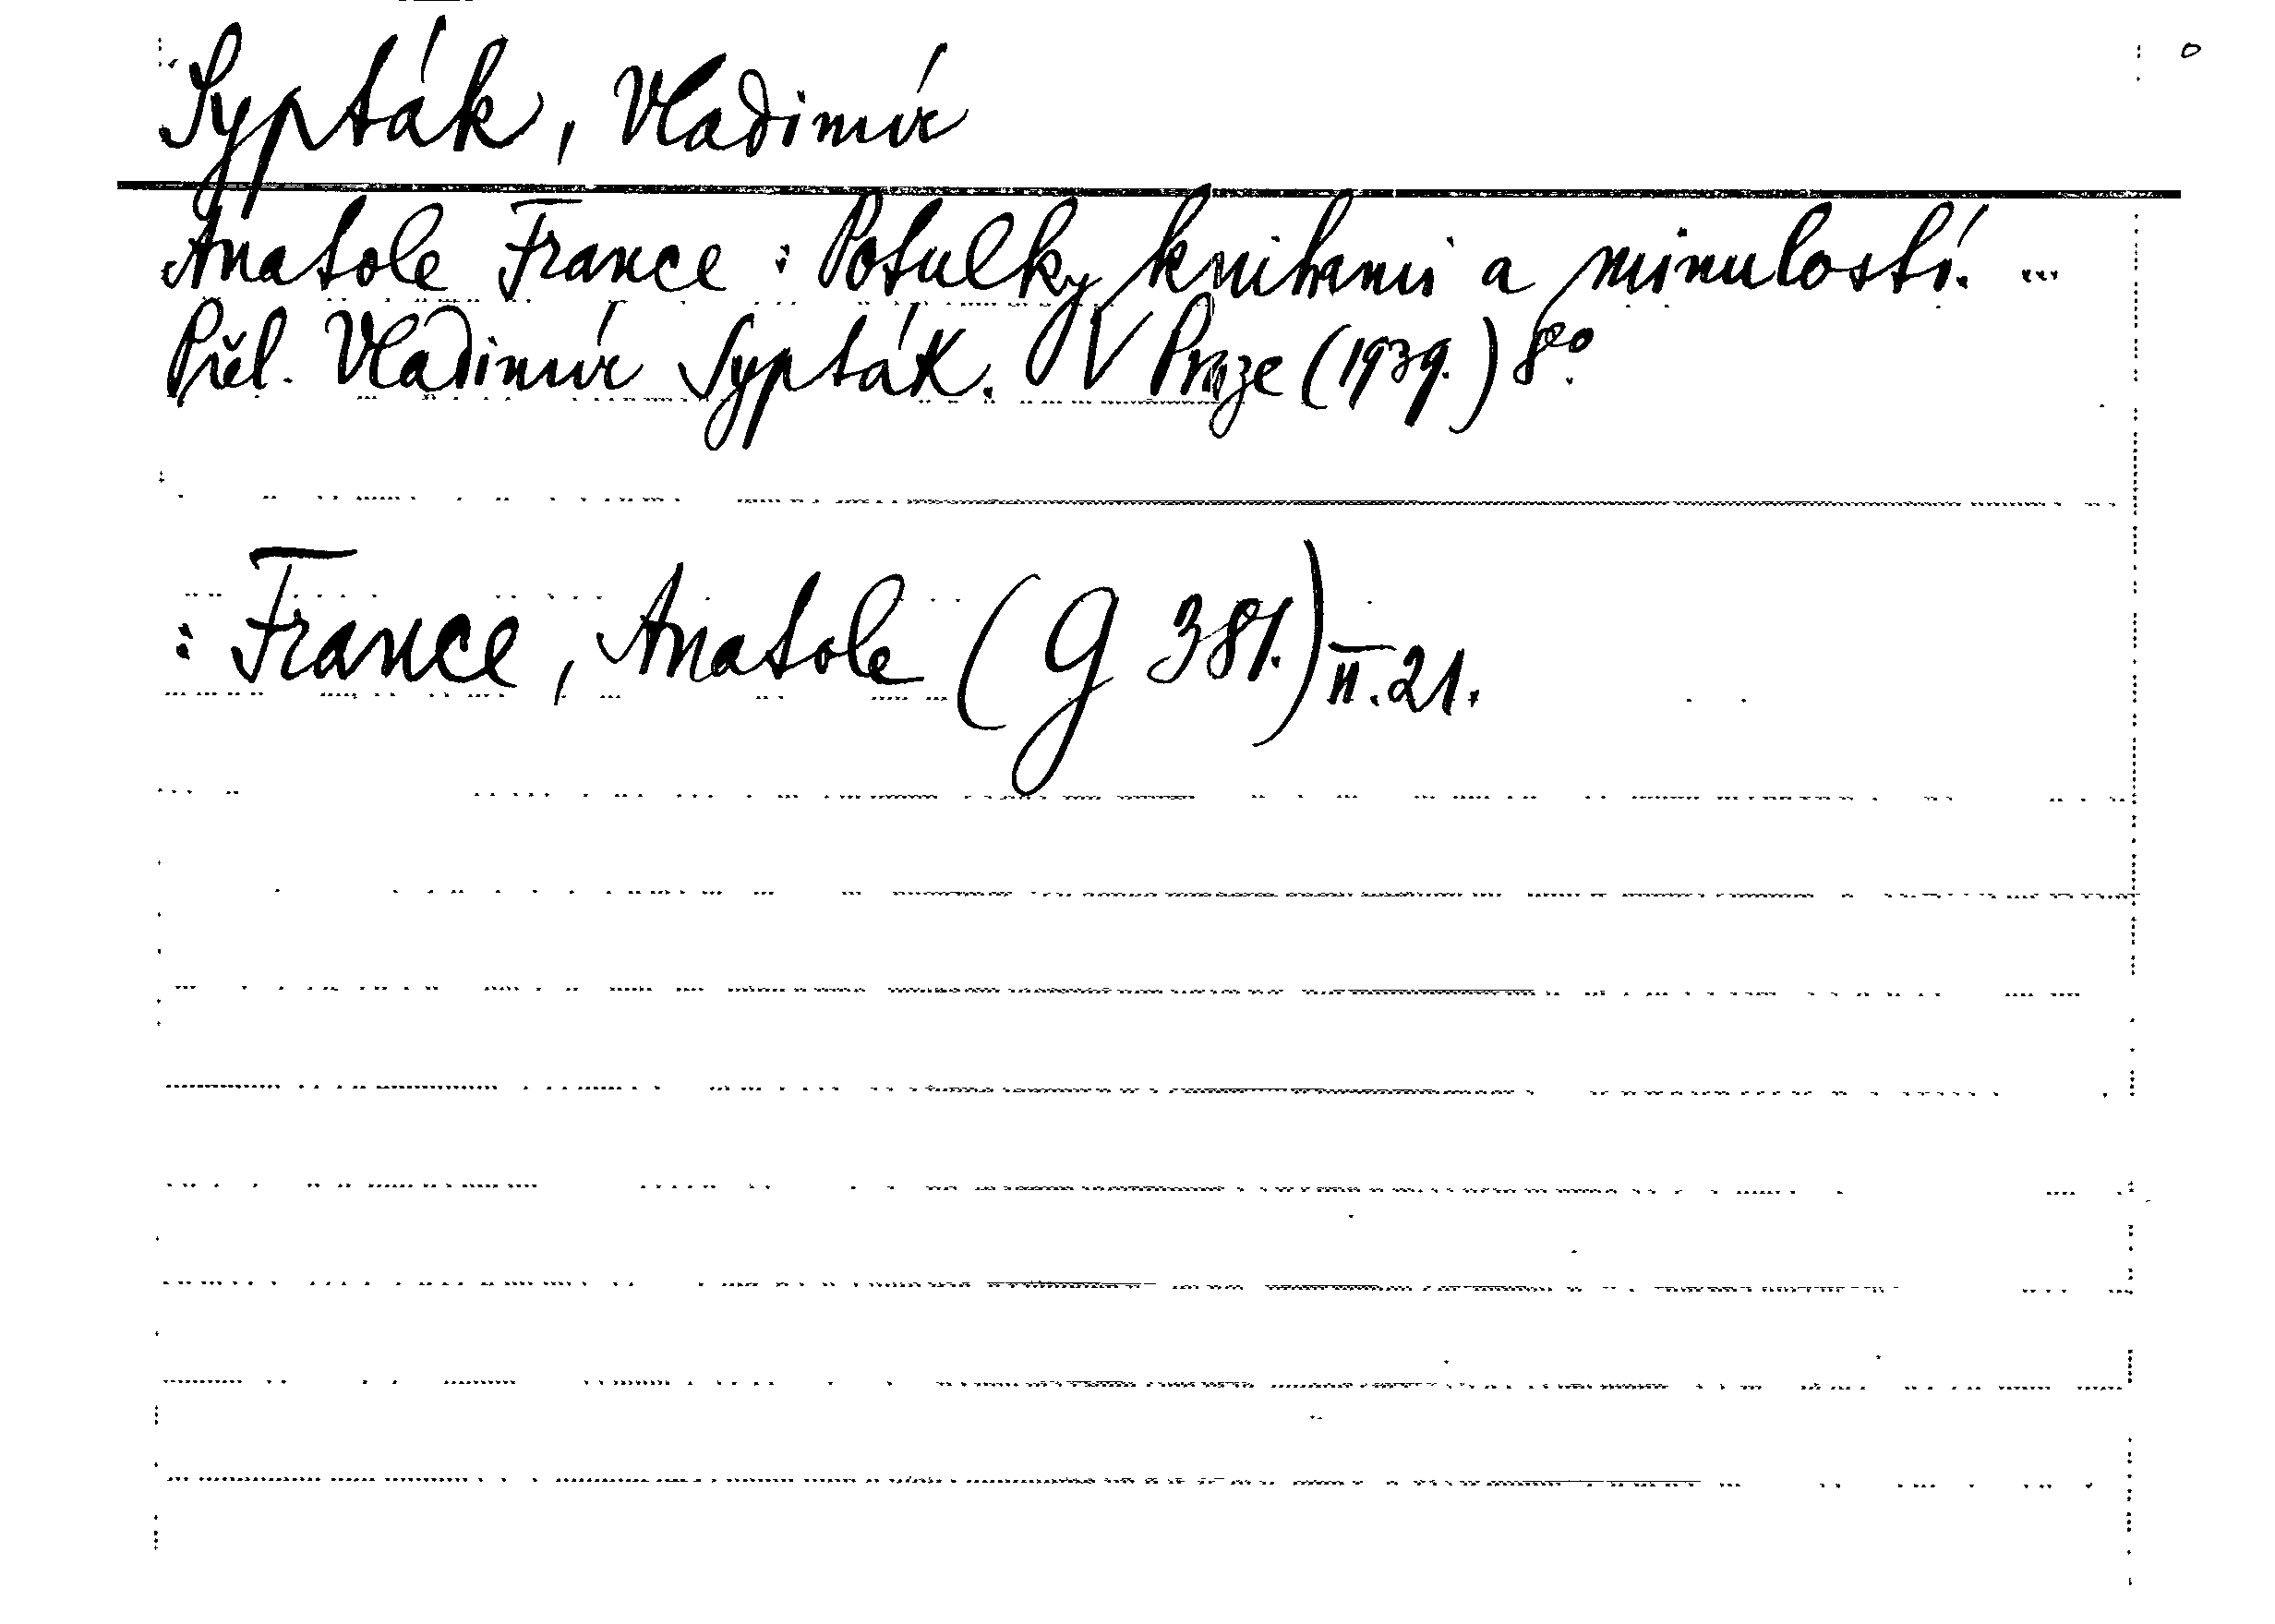 Sypták, Vladimír
Anatole France: Potulky knihami a minulostí. ...
Přel. Vladimír Sypták. V Praze (1939.) 8o.
: France, Anatole (G 381.) II.21.